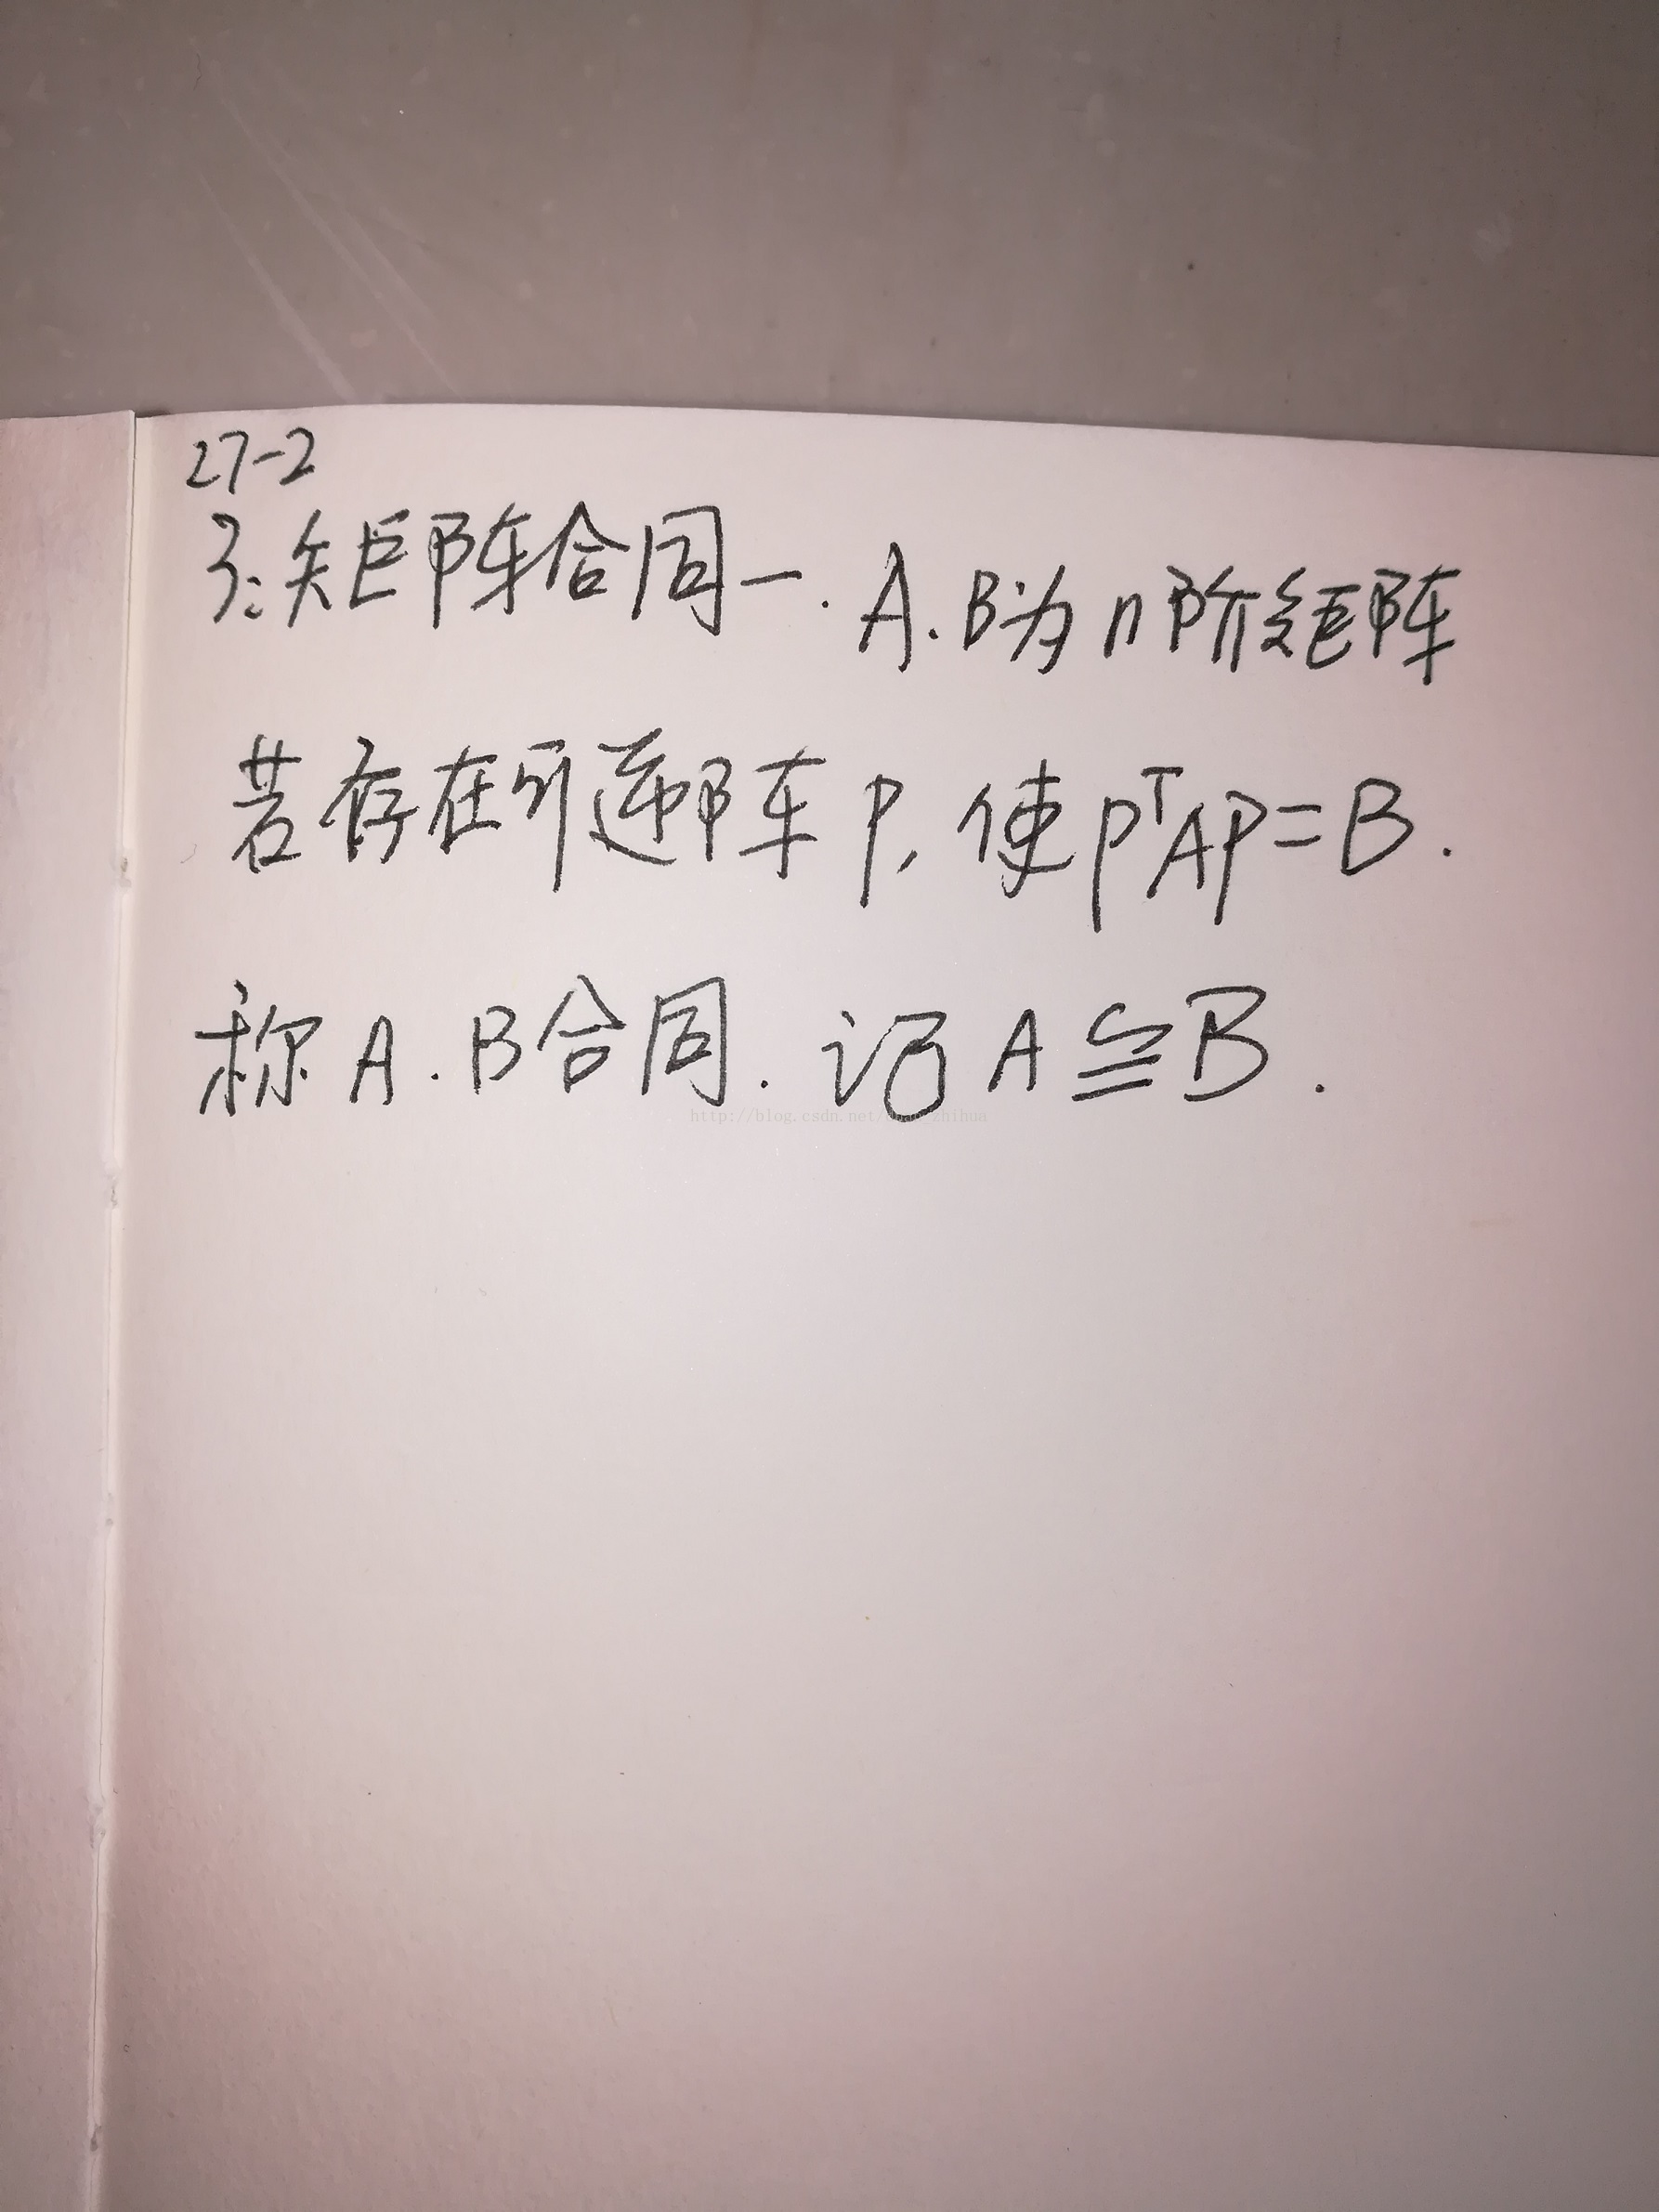 27-2
3: 矩阵合同一. A.B为n阶矩阵
若存在可逆阵P, 使PᵀAP=B.
称A.B合同. 记A≌B.
http://blog.csdn.net/ zhihua